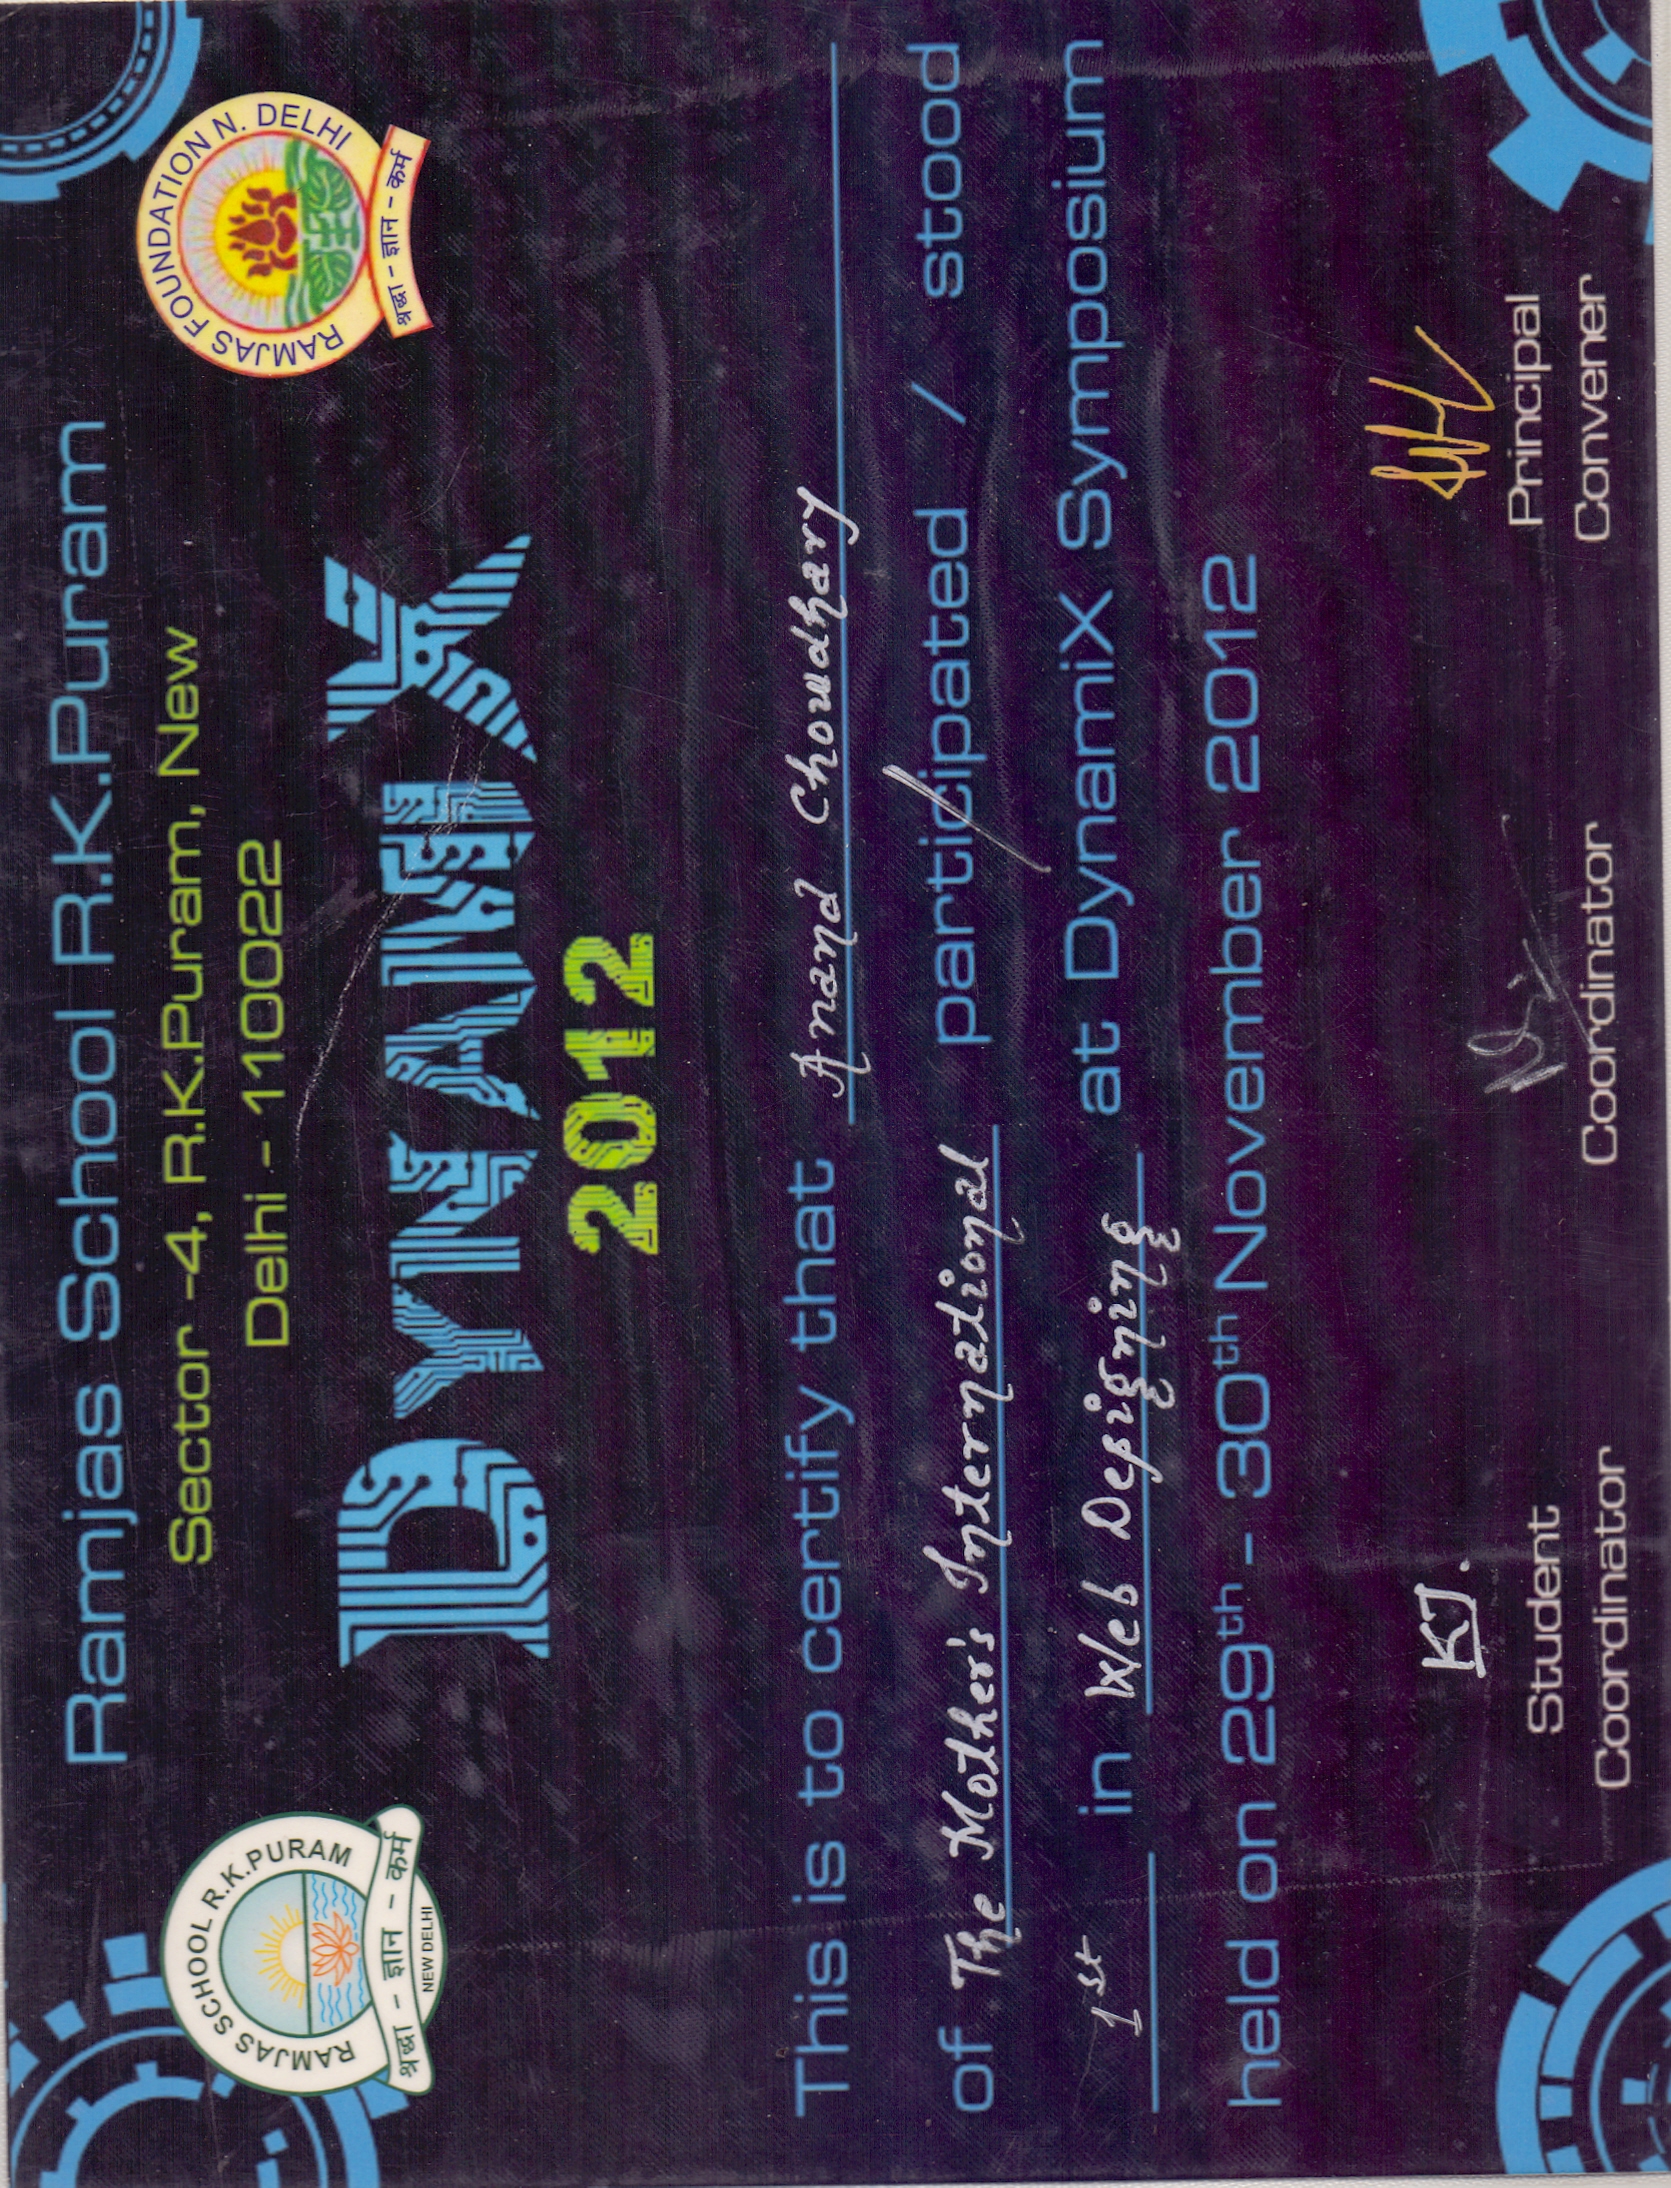 Ramjas School R.K.Puram
Sector -4, R.K.Puram, New
Delhi - 110022
RAMJAS SCHOOL R.K.PURAM
श्रद्धा - ज्ञान - कर्म
NEW DELHI
RAMJAS FOUNDATION N. DELHI
श्रद्धा - ज्ञान - कर्म
DYNAMIX
2012
This is to certify that Anand Chowdhary
of The Mother's International participated / stood
1st in Web Designing at DynamiX Symposium
held on 29th - 30th November 2012
KJ.
Student
Coordinator
Coordinator
Principal
Convener